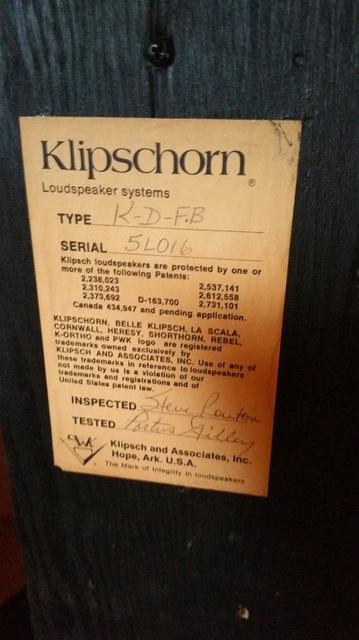 Klipschorn®
Loudspeaker systems
TYPE K-D-FB
SERIAL 5L016
Klipsch loudspeakers are protected by one or
more of the following Patents:
2,238,023 2,537,141
2,310,243 2,612,558
2,373,692 D-163,700 2,731,101
Canada 434,947 and pending application.
KLIPSCHORN, BELLE KLIPSCH, LA SCALA,
CORNWALL, HERESY, SHORTHORN, REBEL,
K-ORTHO and PWK logo are registered
trademarks owned exclusively by
KLIPSCH AND ASSOCIATES, INC. Use of any of
these trademarks in reference to loudspeakers
not made by us is a violation of our
trademarks and registrations and of
United States patent law.
INSPECTED Steve
TESTED Portus Gilley
PWK Klipsch and Associates, Inc.
Hope, Ark. U.S.A.
The Mark of Integrity in loudspeakers